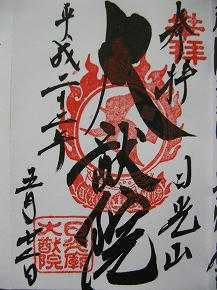 奉拝
日光山
大猷院
平成二十二年
日光廟
大猷院